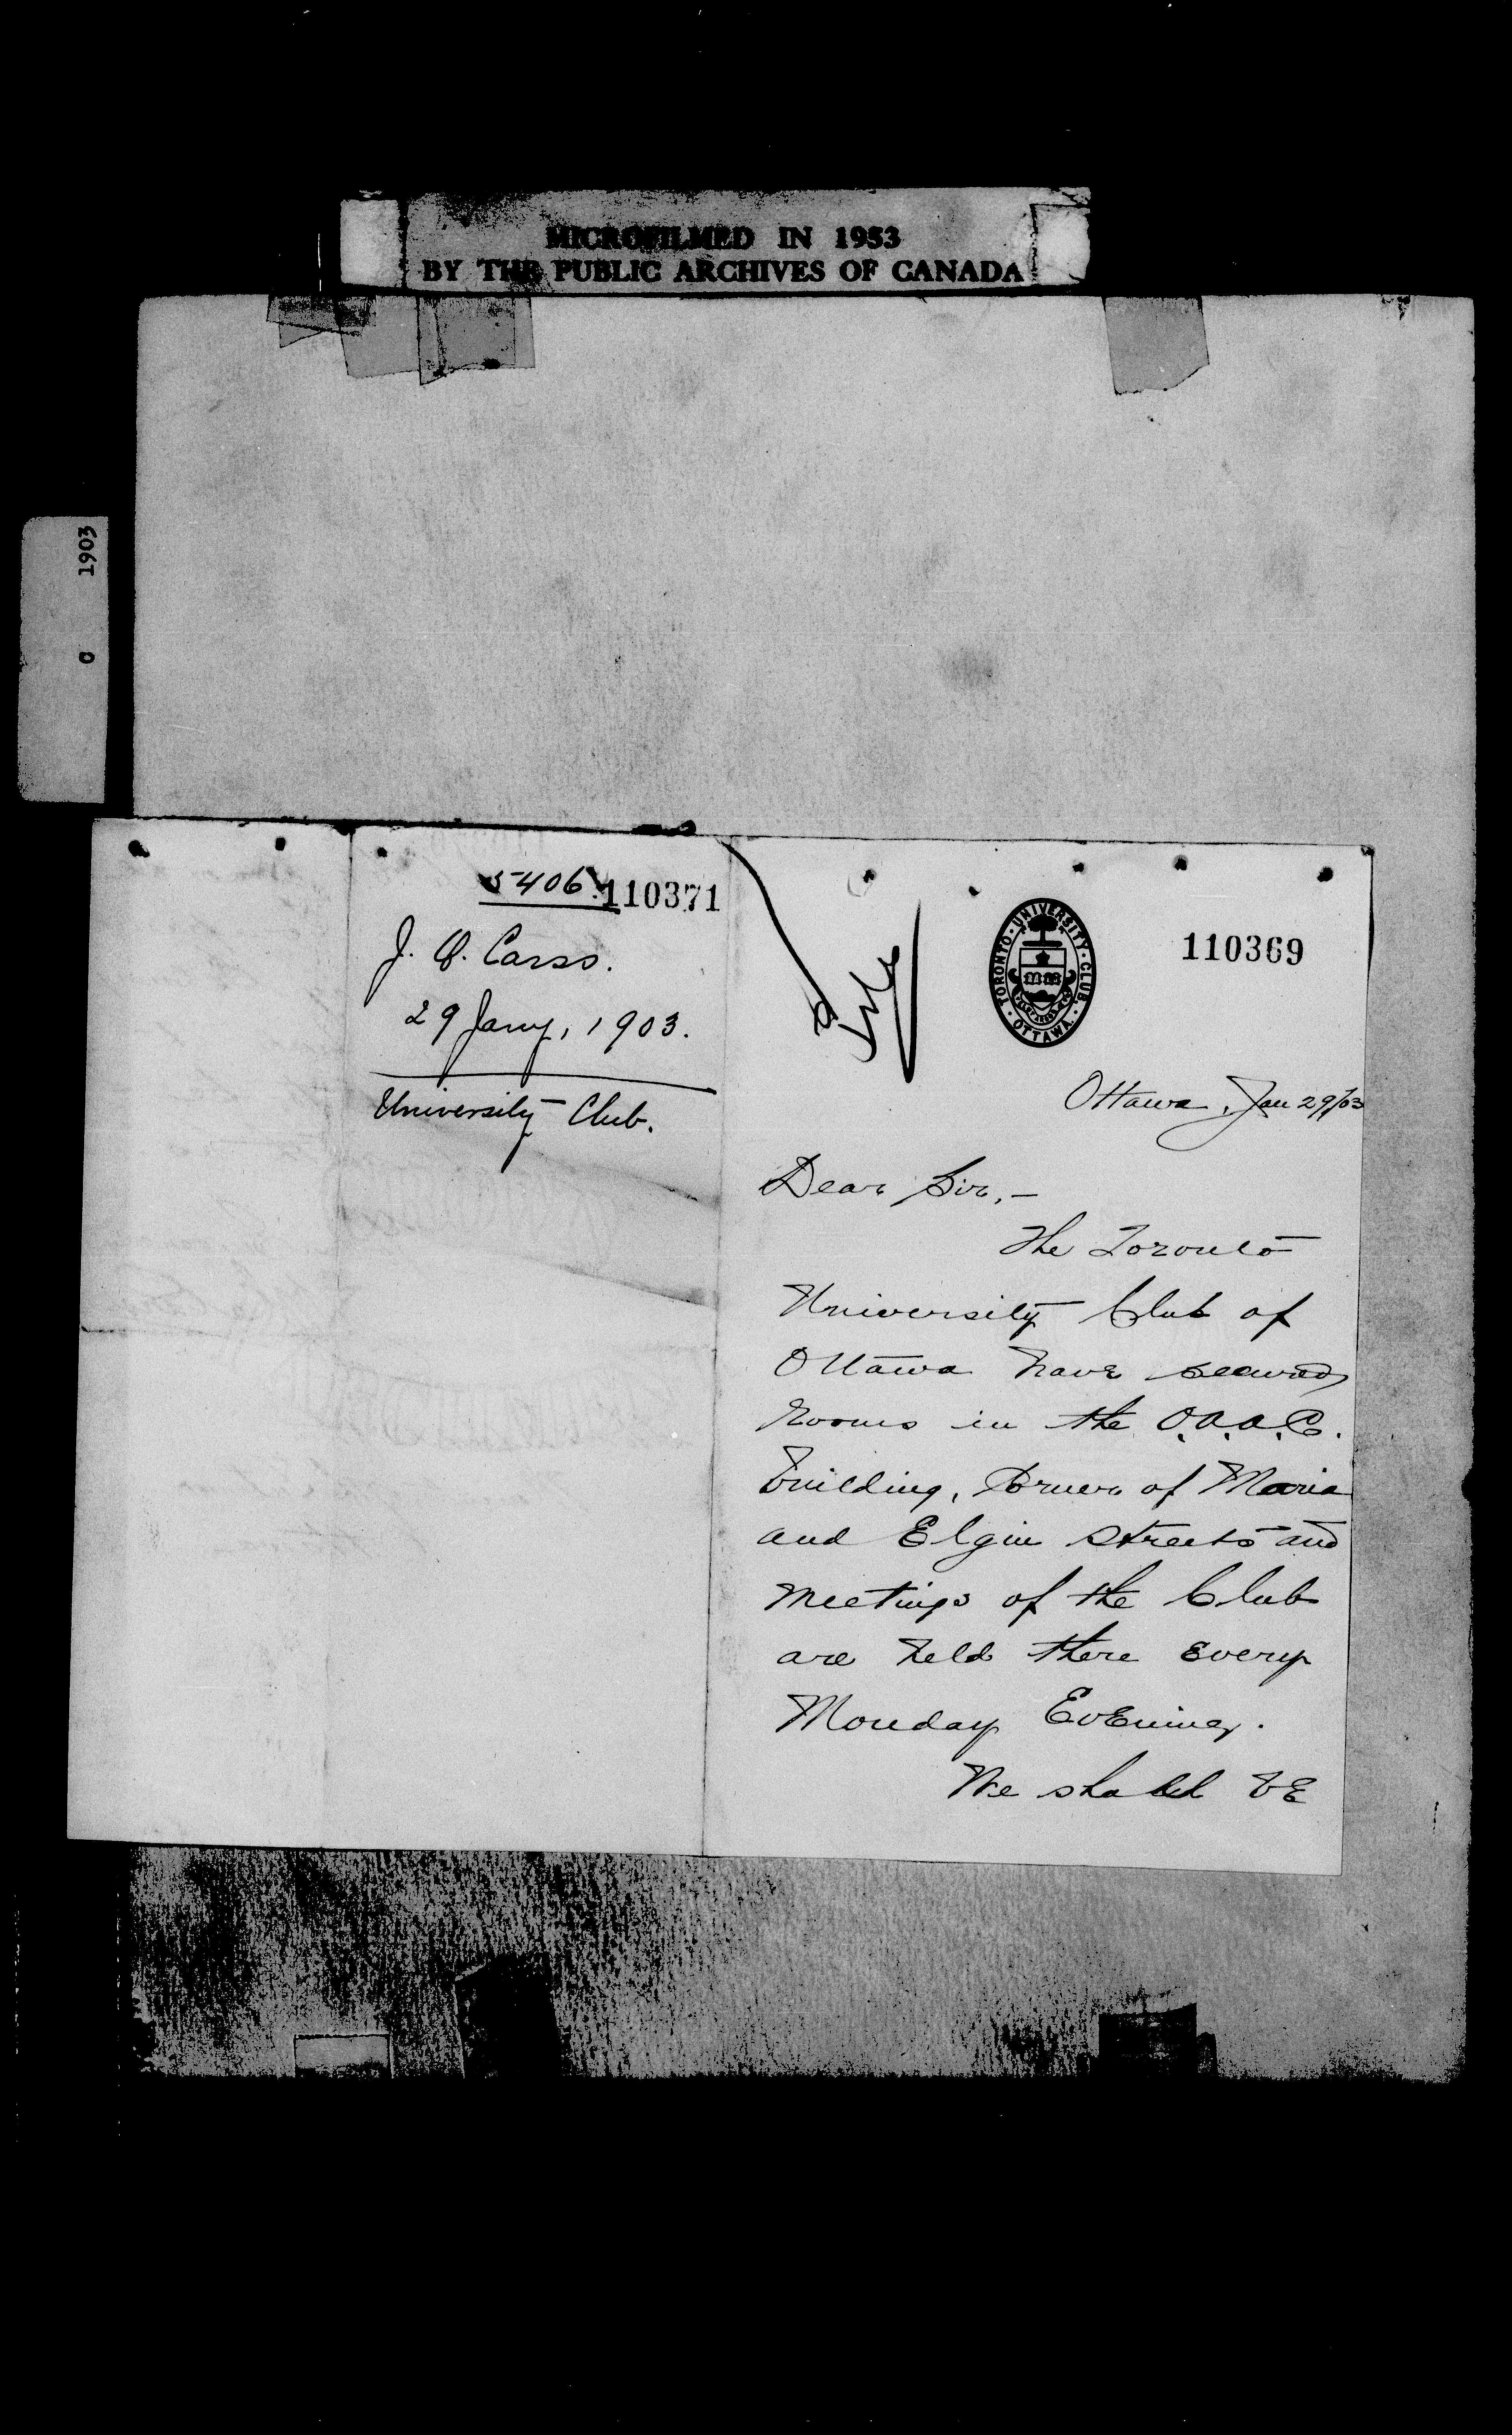 MICROFILMED IN 1953
BY THE PUBLIC ARCHIVES OF CANADA
C 1903
5406
110371
J. Carss.
29 Jany, 1903.
University Club.
110369
TORONTO · UNIVERSITY · CLUB · OTTAWA ·
Ottawa, Jan 29/03
Dear Sir, —
The Toronto
University Club of
Ottawa have secured
rooms in the O.A.A.C.
building, Corner of Maria
and Elgin Streets and
meetings of the Club
are held there every
Monday Evening.
We shall be